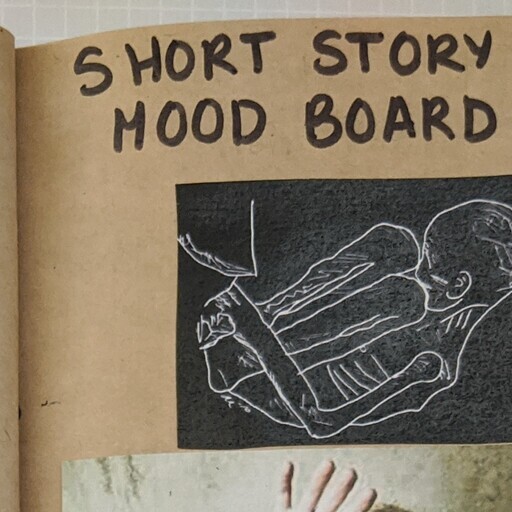 SHORT STORY
MOOD BOARD